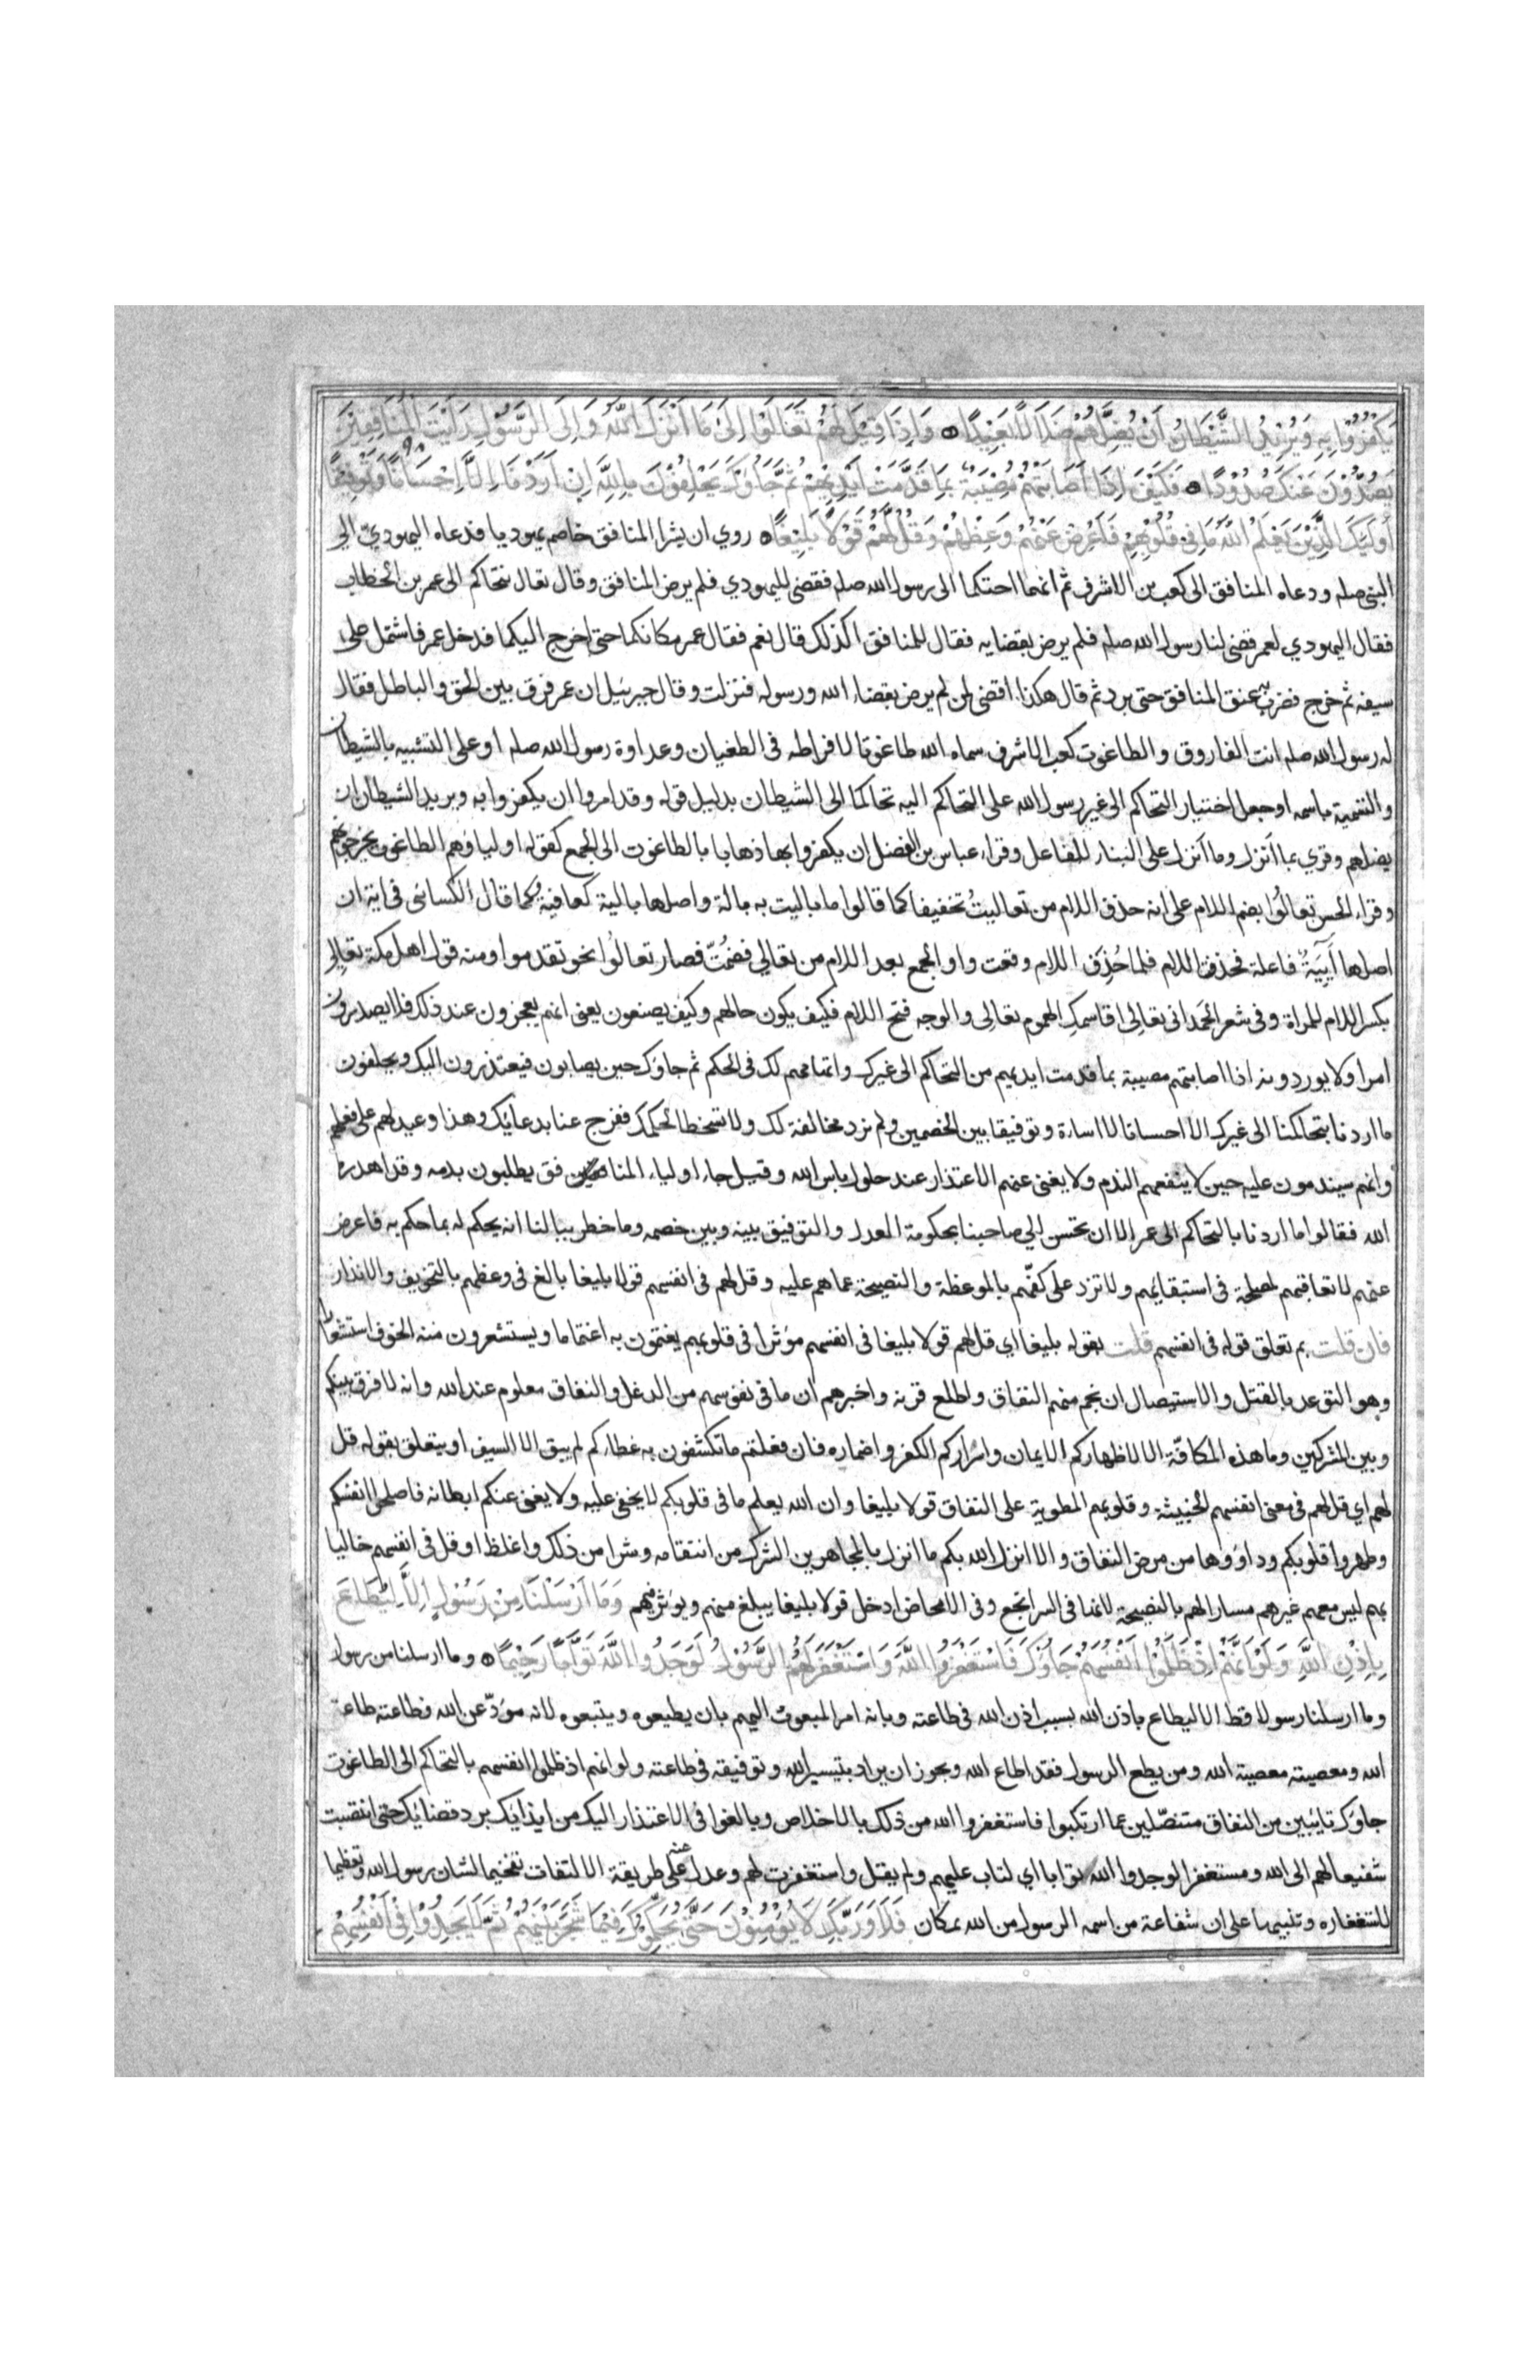 يَكْفُرُوا بِهِ وَيُرِيدُ الشَّيْطَانُ أَنْ يُضِلَّهُمْ ضَلَالًا بَعِيدًا وَإِذَا قِيلَ لَهُمْ تَعَالَوْا إِلَىٰ مَا أَنْزَلَ اللَّهُ وَإِلَى الرَّسُولِ رَأَيْتَ الْمُنَافِقِينَ
يَصُدُّونَ عَنْكَ صُدُودًا فَكَيْفَ إِذَا أَصَابَتْهُمْ مُصِيبَةٌ بِمَا قَدَّمَتْ أَيْدِيهِمْ ثُمَّ جَاؤُكَ يَحْلِفُونَ بِاللَّهِ إِنْ أَرَدْنَا إِلَّا إِحْسَانًا وَتَوْفِيقًا
أُولَٰئِكَ الَّذِينَ يَعْلَمُ اللَّهُ مَا فِي قُلُوبِهِمْ فَأَعْرِضْ عَنْهُمْ وَعِظْهُمْ وَقُلْ لَهُمْ قَوْلًا بَلِيغًا روي ان بشرا المنافق خاصم يهوديا فدعاه اليهوديّ الى
النبى صلم ودعاه المنافق الى كعب بن الاشرف ثم انهما احتكما الى رسول الله صلم فقضى لليهودي فلم يرض المنافق وقال تعال نتحاكم الى عمر بن الخطاب
فقال اليهودي لعمر قضى لنا رسول الله صلم فلم يرض بقضايه فقال للمنافق اكذلك قال نعم فقال عمر مكانكما حتى اخرج اليكما فدخل عمر فاشتمل على
سيفه ثم خرج فضرب به عنق المنافق حتى برد ثم قال هكذا اقضى لمن لم يرض بقضاء الله ورسوله فنزلت وقال جبرئيل ان عمر فرق بين الحق والباطل فقال
له رسول الله صلم انت الفاروق والطاغوت كعب الاشرف سماه الله طاغوتا لافراطه فى الطغيان وعداوة رسول الله صلم او على التشبيه بالشيطان
والتسمية باسمه او جعل اختيار التحاكم الى غير رسول الله على التحاكم اليه تحاكما الى الشيطان بدليل قوله وقد امروا ان يكفروا به ويريد الشيطان ان
يضلهم وقري بما أنزل وما أنزل على البناء للفاعل وقراء عباس بن الفضل ان يكفروا بها ذهابا بالطاغوت الى الجمع كقوله اولياؤهم الطاغوت يخرجونهم
وقراء الحسن تعالُوا بضم اللام على انه حذف اللام من تعاليتُ تخفيفا كما قالوا ما باليت به بالة واصلها بالية كعافية وكما قال الكسائى فى اية ان
اصلها أَيِيَةٌ فاعلة فحذفت اللام فلما حُذِفَ اللام وقعت واو الجمع بعد اللام من تعالي فضُمّت فصار تعالُوا نحو تقدموا ومنه قول اهل مكة تعالِي
بكسر اللام للمراة وفى شعر الحَمدانى تعالِى اقاسمكِ الهموم تعالِى والوجه فتح اللام فكيف يكون حالهم وكيف يصنعون يعنى انهم يعجزون عند ذلك فلا يصدرون
امرا ولا يوردونه اذا اصابتهم مصيبة بما قدمت ايديهم من التحاكم الى غيرك واتهامهم لك فى الحكم ثم جاؤك حين يصابون فيعتذرون اليك ويحلفون
ما اردنا بتحاكمنا الى غيرك الا احسانا لا اساءة وتوفيقا بين الخصمين ولم نرد مخالفة لك ولا تسخطا لحكمك ففرج عنا بدعائك وهذا وعيد لهم على فعلهم
وانهم سيندمون عليه حين لا ينفعهم الندم ولا يغنى عنهم الاعتذار عند حلول باس الله وقيل جاء اولياء المنافق يطلبون بدمه وقد اهدره
الله فقالوا ما اردنا بالتحاكم الى عمر الا ان يحسن الي صاحبنا بحكومة العدل والتوفيق بينه وبين خصمه وما خطر ببالنا انه يحكم له بما حكم به فاعرض
عنهم لا تعاقبهم لمصلحة فى استبقايهم ولا تزد على كفّهم بالموعظة والنصيحة عما هم عليه وقل لهم فى انفسهم قولا بليغا بالغ فى وعظهم بالتخويف والانذار
فان قلت بم تعلق قوله فى انفسهم قلت بقوله بليغا اي قل لهم قولا بليغا فى انفسهم مؤثرا فى قلوبهم يغتمون به اغتماما ويستشعرون منه الخوف استشعارا
وهو التوعد بالقتل والاستيصال ان نجم منهم النفاق واطلع قرنه واخبرهم ان ما فى نفوسهم من الدغل والنفاق معلوم عند الله وانه لا فرق بينكم
وبين المشركين وما هذه المكافّة الا لاظهاركم الايمان واسراركم الكفر واضماره فان فعلتم ما تكشفون به غطاءكم لم يبق الا السيف او يتعلق بقوله قل
لهم اي قل لهم فى معنى انفسهم الخبيثة وقلوبهم المطوية على النفاق قولا بليغا وان الله يعلم ما فى قلوبكم لا يخفى عليه ولا يغنى عنكم ابطانه فاصلحوا انفسكم
وطهروا قلوبكم وداووها من مرض النفاق والا انزل الله بكم ما انزل بالمجاهرين الشرك من انتقامه وشرا من ذلك واغلظ او قل فى انفسهم خاليا
بهم ليس معهم غيرهم مسارا لهم بالنصيحة لانها فى السر انجع وفى الامحاض ادخل قولا بليغا يبلغ منهم ويؤثر فيهم وَمَا أَرْسَلْنَا مِنْ رَسُولٍ إِلَّا لِيُطَاعَ
بِإِذْنِ اللَّهِ وَلَوْ أَنَّهُمْ إِذْ ظَلَمُوا أَنْفُسَهُمْ جَاؤُكَ فَاسْتَغْفَرُوا اللَّهَ وَاسْتَغْفَرَ لَهُمُ الرَّسُولُ لَوَجَدُوا اللَّهَ تَوَّابًا رَحِيمًا وما ارسلنا من رسول
وما ارسلنا رسولا قط الا ليطاع باذن الله بسبب اذن الله فى طاعته وبانه امر المبعوث اليهم بان يطيعوه ويتبعوه لانه مؤدّ عن الله فطاعته طاعة
الله ومعصيته معصية الله ومن يطع الرسول فقد اطاع الله ويجوز ان يراد بتيسير الله وتوفيقه فى طاعته ولو انهم اذ ظلموا انفسهم بالتحاكم الى الطاغوت
جاؤك تايبين من النفاق متنصّلين عما ارتكبوا فاستغفروا الله من ذلك بالاخلاص وبالغوا فى الاعتذار اليك من ايذايك برد قضائك حتى انتصبت
شفيعا لهم الى الله ومستغفرا لوجدوا الله توابا اي لتاب عليهم ولم يقل واستغفرت لهم وعدل عنه على طريقة الالتفات تفخيما لشان رسول الله وتعظيما
لاستغفاره وتنبيها على ان شفاعة من اسمه الرسول من الله بمكان فَلَا وَرَبِّكَ لَا يُؤْمِنُونَ حَتَّىٰ يُحَكِّمُوكَ فِيمَا شَجَرَ بَيْنَهُمْ ثُمَّ لَا يَجِدُوا فِي أَنْفُسِهِمْ